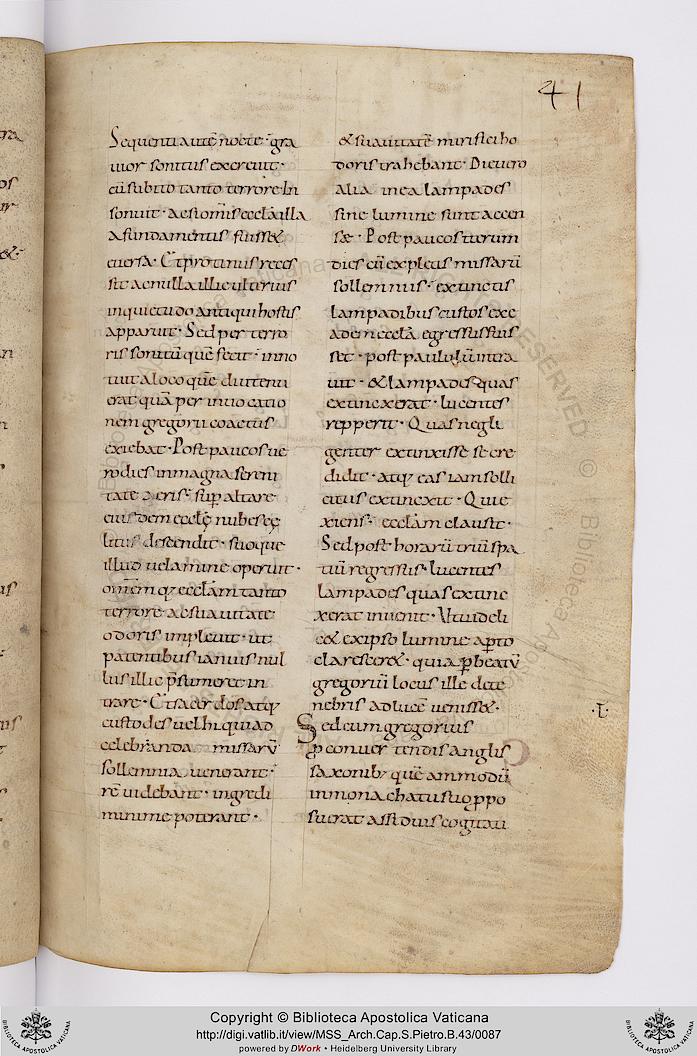 41
Sequenti autē nocte · gra
uior sonitus excreuit ·
cū subito tanto terrore in
sonuit · ac si om̄is eccla illa
a fundamentis fuiss&
euersa · Et protinus reces
sit ac nulla illic ulterius
inquietudo antiqui hostis
apparuit · Sed per terro
ris sonitū quē fecit · inno
tuit a loco quē diu tenu
erat quā per inuocatio
nem gregorii coactus
exiebat · Post paucos ue
ro dies in magna sereni
tate aeris · sup altare
eiusdem ecclę nubes cę
litus descendit · suoque
illud uelamine operuit ·
omēm q; ecclam tanto
terrore ac suauitate
odoris impleuit · ut
patentibus ianuis nul
lus illic p̄sumeret in
trare · Et sacerdos atq;
custodes uel hi qui ad
celebranda missarū
sollemnia uenerant ·
rē uidebant · ingredi
minime poterant ·
& suauitatē mirifici ho
doris trahebant · Die uero
alia in ea lampades
sine lumine sunt accen
sæ · Post paucos iterum
dies cū expletis missarū
sollemniis · extinctis
lampadibus custos ex e
adem eccla egressus fuis
set · post paululū intra
uit · & lampades quas
extinxerat · lucentes
repperit · Quas negli
genter extinxisse se cre
didit · atq; eas iam solli
citius extinxit · Qui e
xiens · ecclam clausit ·
Sed post horarū triū spa
tiū regressus · lucentes
lampades quas extinx
xerat inuenit · Ut uideli
c& ex ipso lumine aperto
claresceret · quia p beatū
gregoriū locus ille de te
nebris ad lucē uenisset ·
Sed cum gregorius
p conuertendis anglis
saxonib; quē ammodū
in monachatu suo ppo
suerat assiduis cogitati
· I ·
Copyright © Biblioteca Apostolica Vaticana
http://digi.vatlib.it/view/MSS_Arch.Cap.S.Pietro.B.43/0087
powered by DWork • Heidelberg University Library